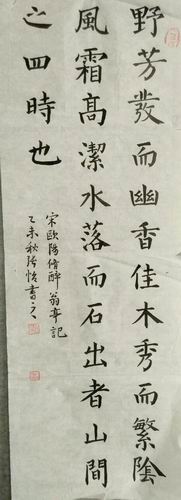 野芳發而幽香佳木秀而繁陰
風霜高潔水落而石出者山間
之四時也
宋歐陽脩醉翁亭記
乙未秋張怡書之